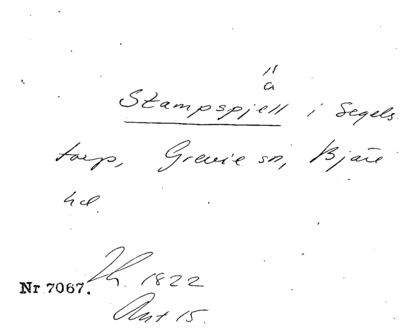 "
a
Stampspjell i Segels
torp, Grevie sn, Bjäre
hd.
Nr 7067. Th. 1822
Ant 15.